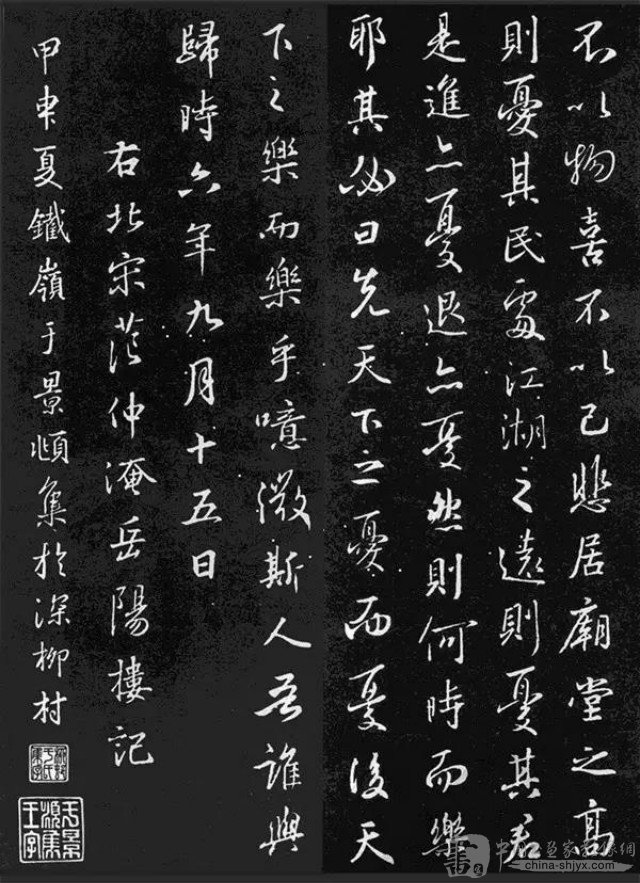 不以物喜不以己悲居廟堂之高
則憂其民處江湖之遠則憂其君
是進亦憂退亦憂然則何時而樂
耶其必曰先天下之憂而憂後天
下之樂而樂乎噫微斯人吾誰與
歸時六年九月十五日
右北宋范仲淹岳陽樓記
甲申夏鐵嶺于景頫集於深柳村
于景頫集王字
china-shjyx.com